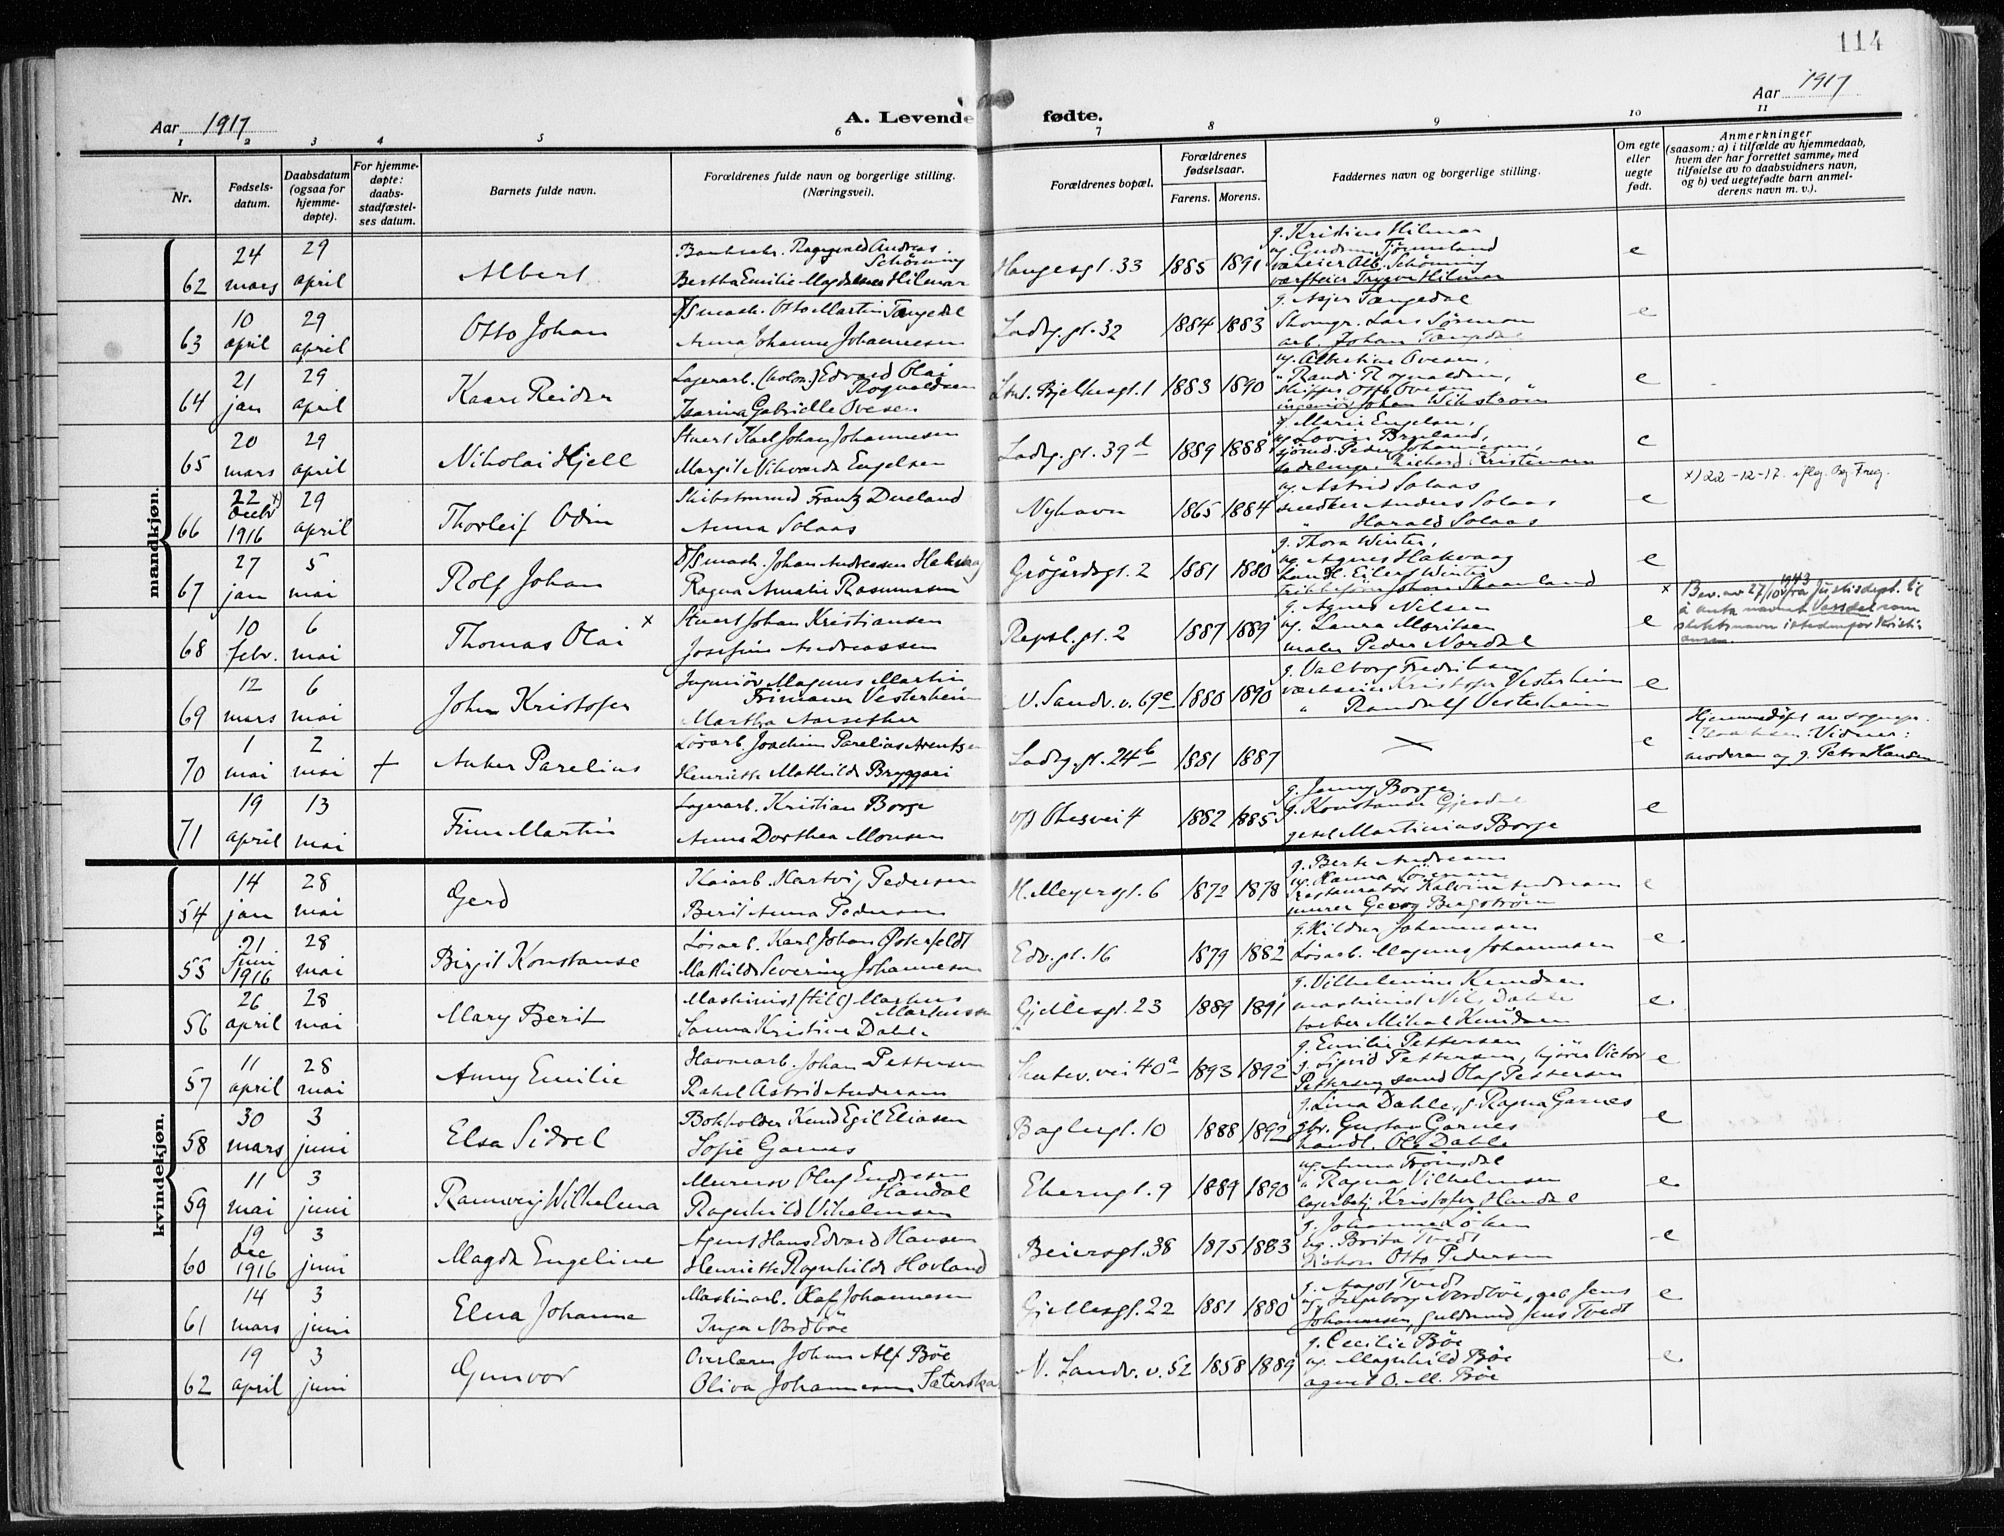 114
Aar 1917
A. Levende fødte.
Aar 1917
1 2 3 4 5 6 7 8 9 10 11
Nr.
Fødsels-
datum.
Daabsdatum
(ogsaa for
hjemme-
døpte).
For hjemme-
døpte:
daabs-
stadfæstel-
ses datum.
Barnets fulde navn.
Forældrenes fulde navn og borgerlige stilling.
(Næringsvei).
Forældrenes bopæl.
Forældrenes
fødselsaar.
Farens. Morens.
Faddernes navn og borgerlige stilling.
Om egte
eller
uegte
født.
Anmerkninger
(saasom: a) i tilfælde av hjemmedaab,
hvem der har forrettet samme, med
tilføielse av to daabsvidners navn,
og b) ved uegtefødte barn anmel-
derens navn m. v.).
mandkjøn.
62 24 mars 29 april Albert
Ragnvald Andreas Schönning
Bertha Emilie Magdalene Hilmar
Haugesgt. 33 1885 1891
g. Kristine Hilmar
ug. Gudrun Tönneland
Alb. Schönning
Trygve Hilmar
e
63 10 april 29 april Otto Johan
D/S mask. Otto Martin Tangedal
Anna Johanne Johannesen
Ladeg. gt. 32 1884 1883
Lars Sörensen
arb. Johan Tangedal
e
64 21 jan 29 april Kaare Reidar
Lagerarb. (kolon.) Edvard Olai Rognaldsen
Isarina Gabrielle Ovesen
Bjelkesgt. 1 1883 1890
ug. Albertine Ovesen,
" Randi Rognaldsen,
skipper Otto Ovesen
ingeniör Johan Wikström
e
65 20 mars 29 april Nikolai Hjell
Stuert Karl Johan Johannesen
Margit Nikoarda Engelsen
Ladeg. gt. 39d 1889 1888
g. Marie Engelsen,
Peder Johannesen,
Richard Kristensen
e
66 22 x) decbr 1916 29 april Thorleif Odin
Skibstömmd Frantz Dueland
Anna Solaas
Nyhavn 1865 1884
ug. Astrid Solaas
snedker Anders Solaas
" Harald Solaas
e
x) 22-12-17.
67 27 jan 5 mai Rolf Johan
D/S mask. Johan Andreassen Hakvaag
Ragna Amalie Rasmussen
Grögårdsgt. 2 1881 1880
g. Thora Winter,
ug. Agnes Hakvaag
handl. Eilert Winter
e
68 10 febr. 6 mai Thomas Olai x
Stuert Johan Kristiansen
Josefine Andreassen
Repsl. gt. 2 1887 1889
g. Agnes Nilsen
ug. Laura Moritsen
maler Peder Nordal
e
x Bev. av 27/10 1943 fra Justisdept. til
å anta navnet
slektsnavn istedenfor Kristi-
ansen
69 12 mars 6 mai John Kristofer
Ingeniör Magnus Martin Frimann Vesterheim
Martha Aarsether
N. Sandv. v. 69e 1880 1890
g. Valborg Fredriksen
Kristofer Vesterheim
" Randulf Vesterheim
e
70 1 mai 2 mai + Anker Parelius
Lösarb. Joachim Parelius Arentsen
Henriette Mathilde Bryggari
Ladeg. gt. 24b 1881 1887
e
Hjemmedöpt av sognepr.
Vidner:
moderen og g. Petra Hansen
71 19 april 13 mai Finn Martin
Lagerarb. Kristian Borge
Anna Dorthea Monsen
1882 1885
g. Jenny Borge
g. Konstance Gjesdal
Martinius Borge
e
kvindekjøn.
54 14 jan 28 mai Gerd
Kaiarb. Hartvig Pedersen
Berit Anna Pedersen
H. Meyersgt. 6 1872 1878
g. Berte Andresen
ug. Hanna Sörensen
murer Georg Bergström
e
55 21 juni 1916 28 mai Birgit Konstanse
Lösarb. Karl Johan Österfeldt
Mathilde Severine Johannesen
Edv. gt. 16 1879 1882
g. Hildur Johannesen
Lösarb. Magnus Johannesen
e
56 26 april 28 mai Mary Berit
Maskinist (till) Markus Martinssen
Sanna Kristine Dahle
Gjellesgt. 23 1889 1891
g. Vilhelmine Knudsen
maskinist Nils Dahle
farber Mikal Knudsen
e
57 11 april 28 mai Anny Emilie
Havnearb. Johan Pettersen
Rakel Astrid Andersen
Skutev. vei 40a 1893 1892
g. Emilie Pettersen
g. Sigrid Pettersen, björe Victor
Pettersen, sømd Olaf Pettersen
e
58 30 mars 3 juni Elsa Sidsel
Bokholder Knud Egil Eliasen
Sofie Garnes
Baglergt. 10 1888 1892
g. Lina Dahle, g. Ragna Garnes
gbr. Gustav Garnes
handl. Ole Dahle
e
59 11 mai 3 juni Rannveig Wilhelmina
Murersv Oluf Endresen Handal
Ragnhild Vilhelmsen
Eherngt. 9 1889 1890
ug. Anna Trönsdal
" Ragna Vilhelmsen
lagerbetj. Kristofer Handal
e
60 19 dec 1916 3 juni Magda Engeline
Agent Hans Edvard Hansen
Henriette Ragnhilde Hovland
Beiersgt. 38 1875 1883
g. Johanne Löken
ug. Brita Tvedt
Otto Pedersen
e
61 14 mars 3 juni Elna Johanne
Maskinarb. Olaf Johannesen
Inga Nordböe
Gjellesgt. 22 1881 1880
g. Aagot Tvedt
ug. Ingeborg Nordböe, Jens
Johannesen, guldsmed Jens Tvedt
e
62 19 april 3 juni Gunvor
Overlærer Johan Alf Böe
Oliva Johannesen Sæterska
N. Sandv. v. 52 1858 1889
g. Cecilie Böe
ug. Magnhild Böe
agent O. M. Böe
e